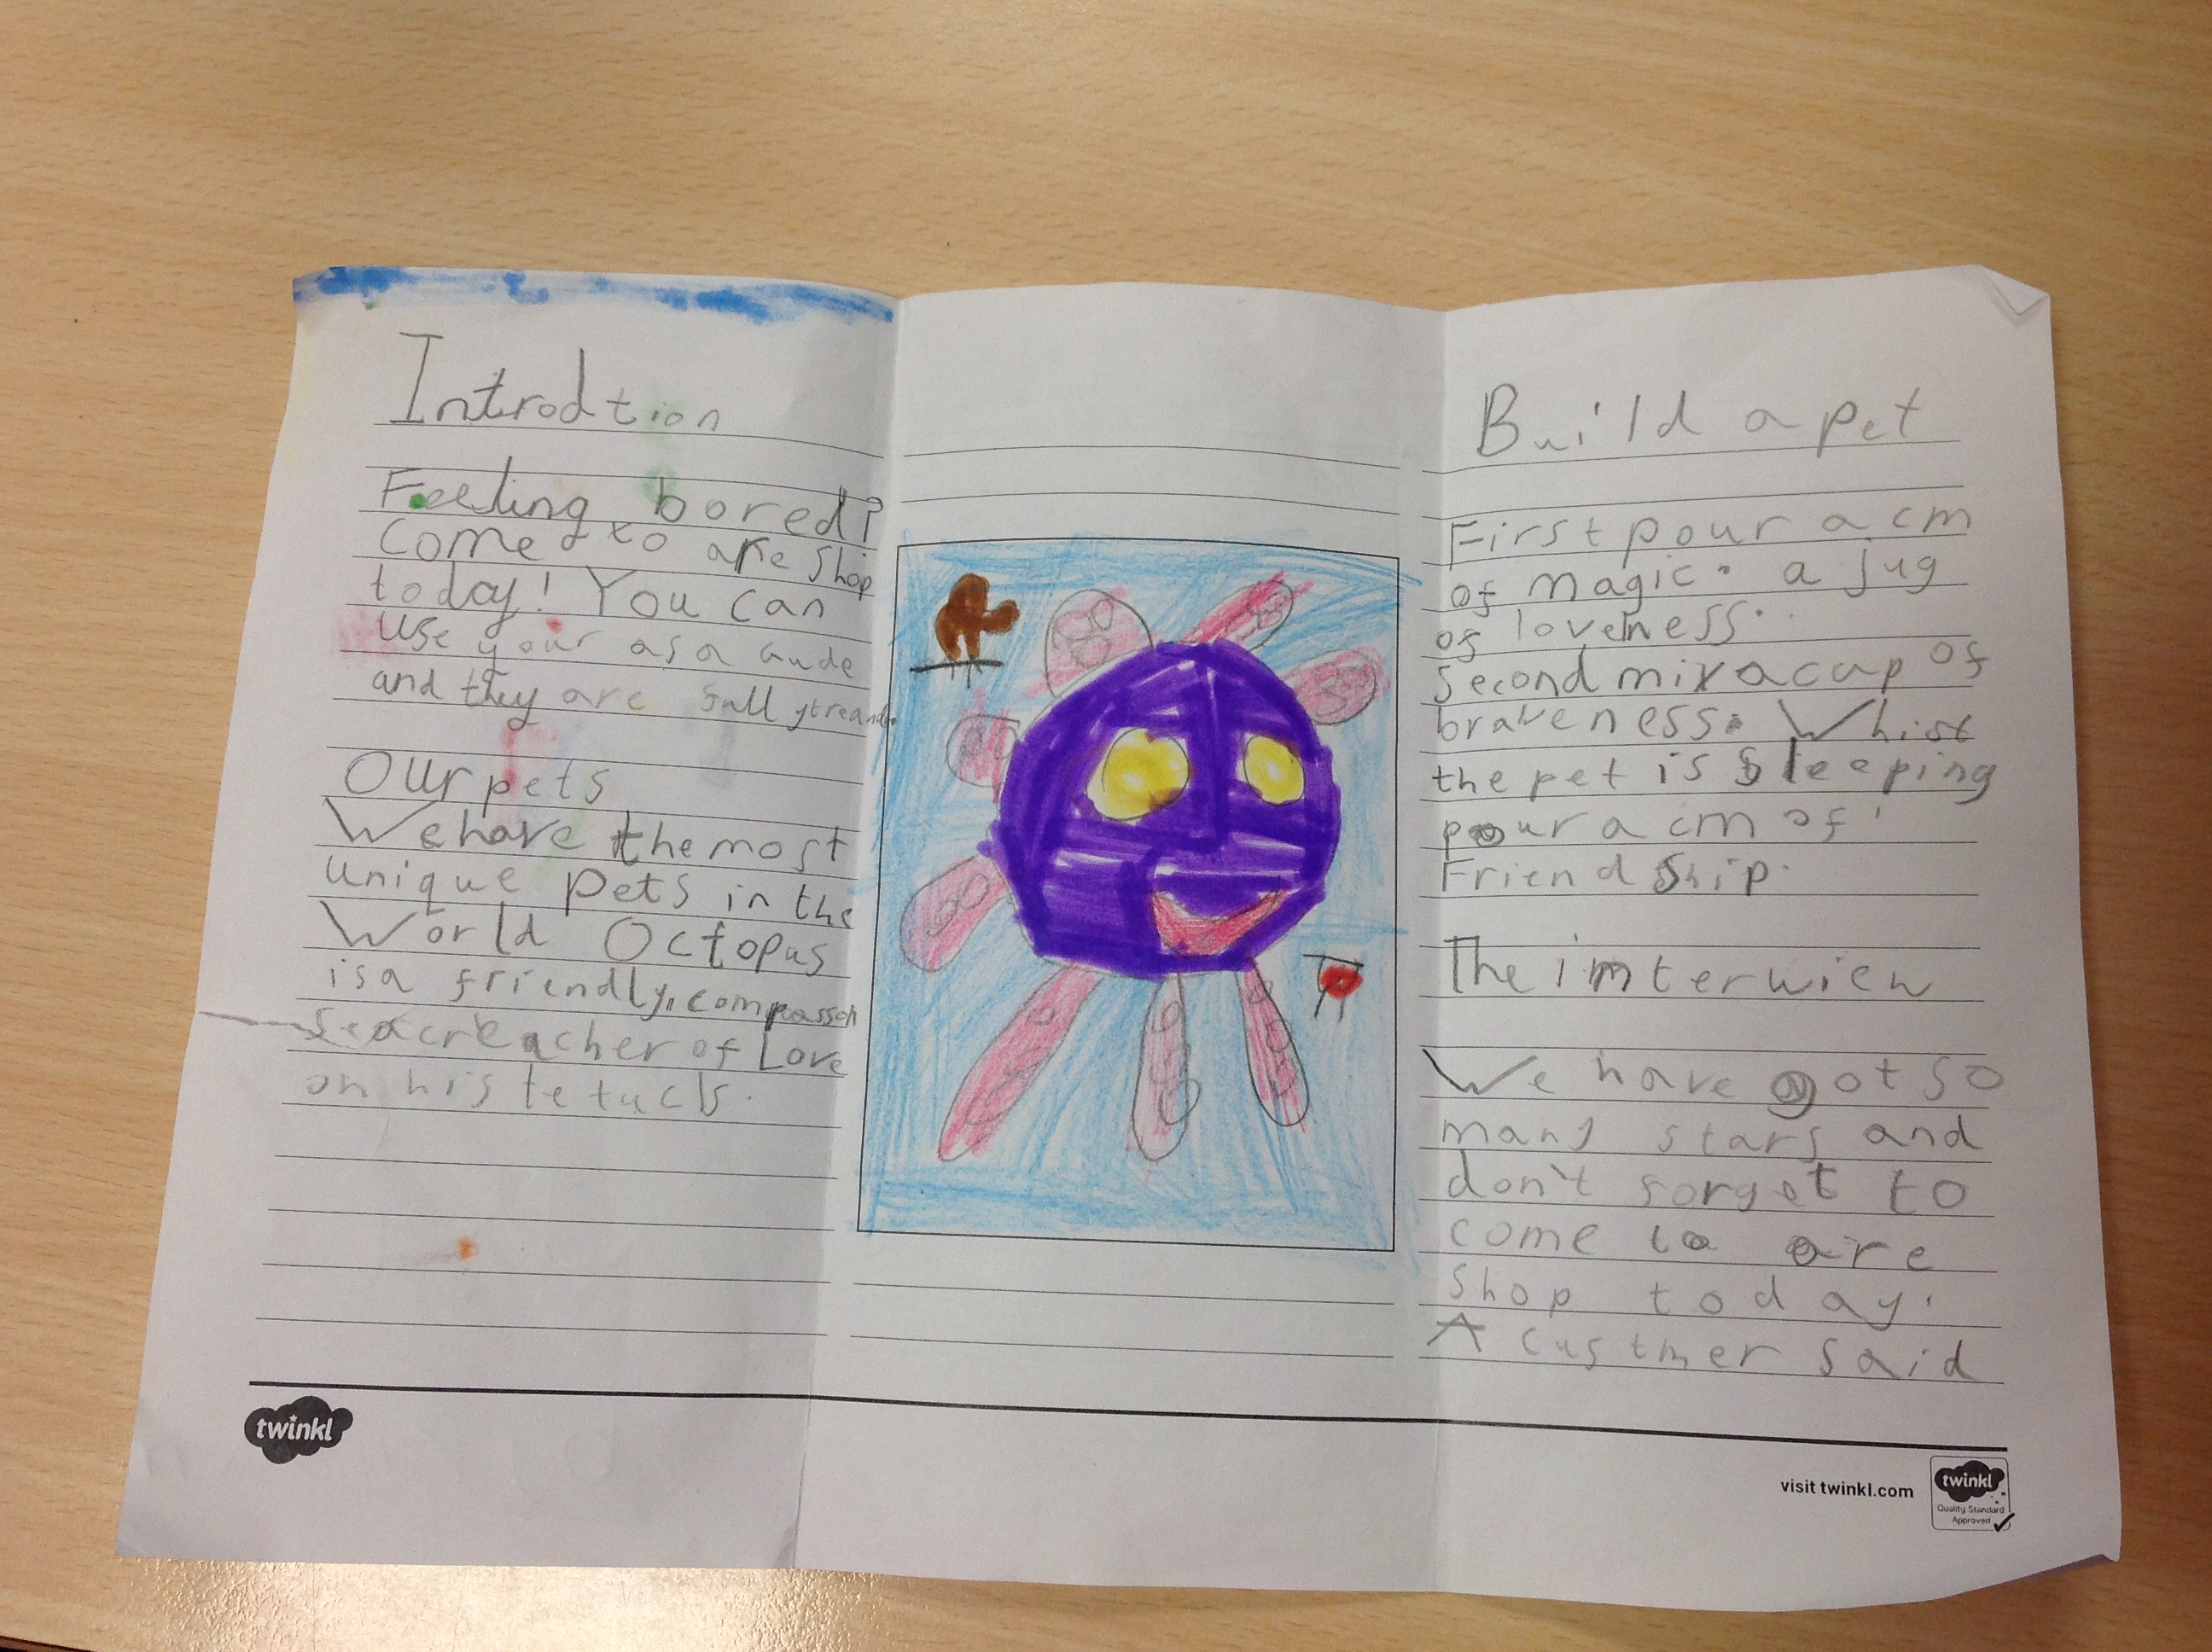 Introdtion
Feeling bored?
Come to are shop
today! You can
use your as a Gude
and they are full
Our pets
We have the most
unique pets in the
World Octopus
is a friendly, compasson
Seacreacher of Love
on his tetucls.
Build a pet
First pour a cm
of magic. a jug
of loveness.
Second mix a cup of
braveness. Whist
the pet is sleeping
pour a cm of
Friend Ship.
The imterwiew
We have got so
many stars and
don't forget to
come to are
Shop today!
A custmer said
twinkl
visit twinkl.com
twinkl
Quality Standard
Approved